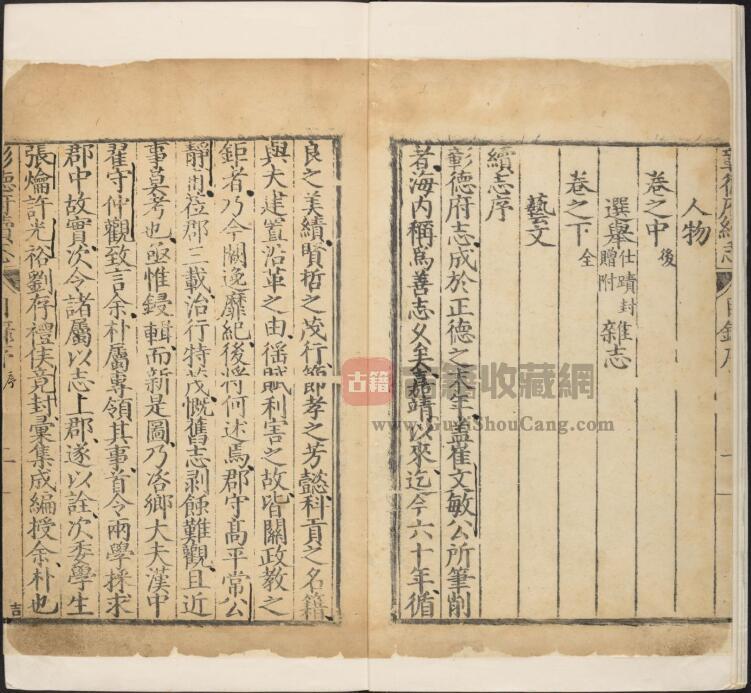 彰德府續志
目錄序
人物
卷之中 後
選舉 仕蹟封贈附 雜志
卷之下 全
藝文
續志序
彰德府志成於正德之末年蓋崔文敏公所筆削
者海内稱為善志乆矣嘉靖以來迄今六十年循
良之美績賢哲之茂行節孝之芳懿科貢之名籍
與夫建置沿革之由徭賦利害之故皆關政教之
鉅者乃今闕逸靡紀後將何述焉郡守高平常公
靜菴蒞郡三載治行特茂慨舊志剥蝕難觀且近
事莫考也亟惟鋟輯而新是圖乃咨鄉大夫漢中
翟守仲觀致言余朴屬專領其事首令兩學採求
郡中故實次令諸屬以志上郡遂以詮次委學生
張爚許光裕劉存禮侯堯封彙集成編授余朴也
彰德府續志
目錄序
二
吉
古籍
收藏網
www.GuJiShouCang.com